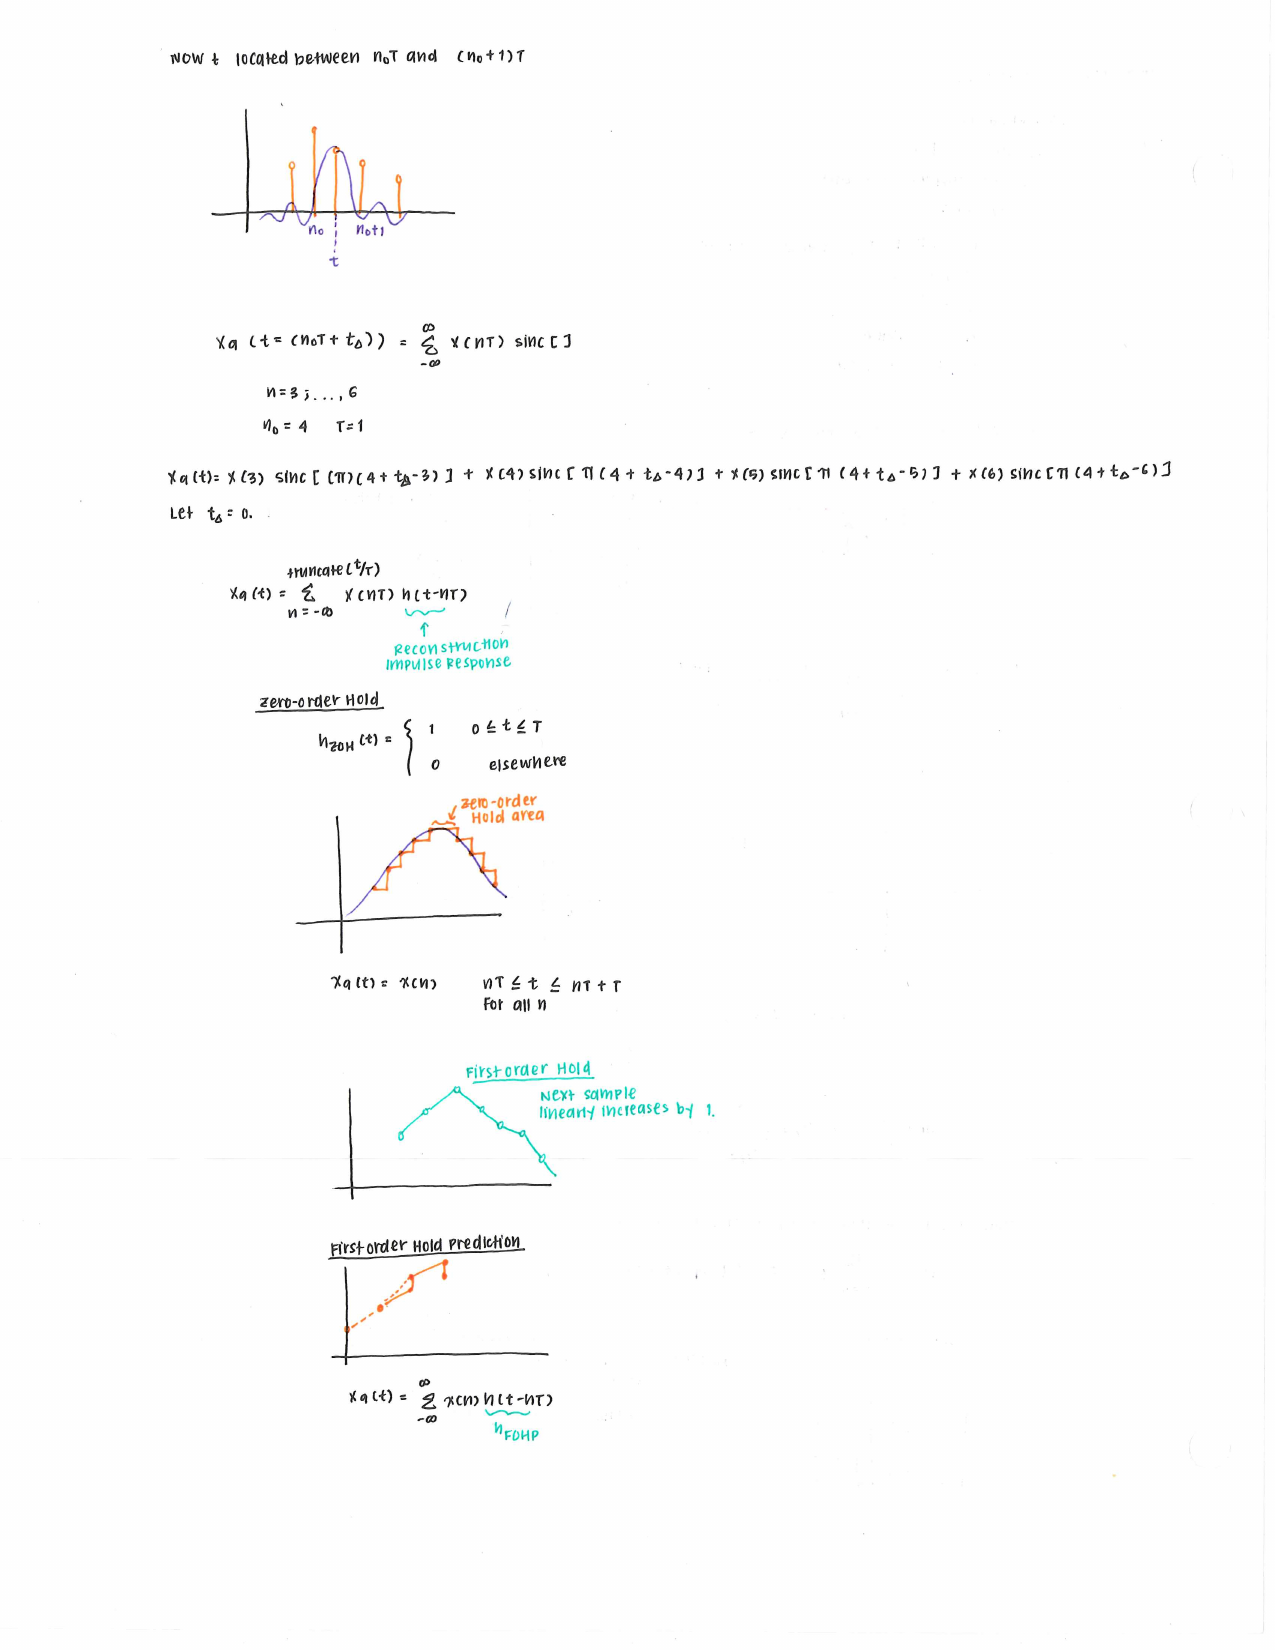 Now t located between n₀T and (n₀+1)T
n₀ n₀+1
t
Xa (t = (n₀T + t△)) = ∞ Σ -∞ X(nT) sinc [ ]
n = 3 ; . . . , 6
n₀ = 4 T=1
Xa(t)= X(3) sinc [ (π)(4 + t△-3) ] + X(4) sinc [ π (4 + t△-4)] + X(5) sinc [ π (4 + t△-5) ] + X(6) sinc [π (4+t△-6)]
Let t△ = 0.
truncate(t/T)
Xa(t) = Σ X(nT) h(t-nT)
n = -∞
↑
Reconstruction
Impulse Response
Zero-order Hold
hZOH (t) = { 1 0 ≤ t ≤ T
0 elsewhere
Zero-order
Hold area
Xa(t) = x(n) nT ≤ t ≤ nT + T
For all n
First order Hold
Next sample
linearly increases by 1.
First order Hold Prediction
∞
Xa(t) = Σ x(n) h(t-nT)
-∞
hFOHP